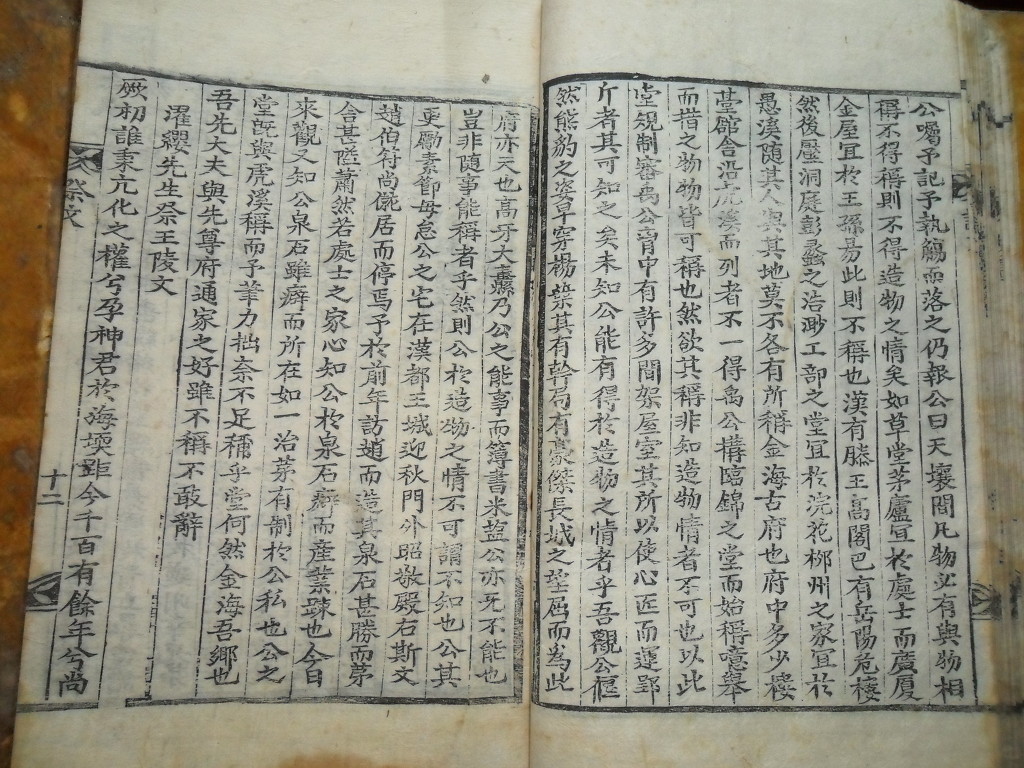 公囑予記予執觴而落之仍報公曰天壤間凡物必有與物相
稱不得稱則不得造物之情矣如草堂茅廬宜於處士而廣厦
金屋宜於王孫易此則不稱也漢有滕王高閣巴有岳陽危樓
然後壓洞庭彭蠡之浩渺工部之堂宜於浣花柳州之家宜於
愚溪隨其人與其地莫不各有所稱金海古府也府中多少樓
臺館舍沿虎溪而列者不一得禹公構臨錦之堂而始稱噫舉
而措之物物皆可稱也然欲其稱非知造物情者不可也以此
堂規制審禹公胷中有許多間架屋室其所以使心匠而運郢
斤者其可知之矣未知公能有得於造物之情者乎吾觀公偃
然熊豹之姿早穿楊葉其有幹局有豪傑長城之望屈而爲此
府亦天也高牙大纛乃公之能事而簿書米盐公亦旡不能也
豈非随事能稱者乎然則公於造物之情不可謂不知也公其
更勵素節毋怠公之宅在漢都王城迎秋門外昭敬殿右斯文
趙伯符尚僦居而停焉予於前年訪趙而造其泉石甚勝而茅
舍甚陋蕭然若處士之家心知公於泉石癖而產業踈也今日
來觀又知公泉石雖癖而所在如一治茅有制於公私也公之
堂旣與虎溪稱而予筆力拙奈不足稱乎堂何然金海吾鄕也
吾先大夫與先尊府通家之好雖不稱不敢辭
濯纓先生祭王陵文
厥初誰秉亢化之權兮孕神君於海堧距今千百有餘年兮尚
祭文
十二